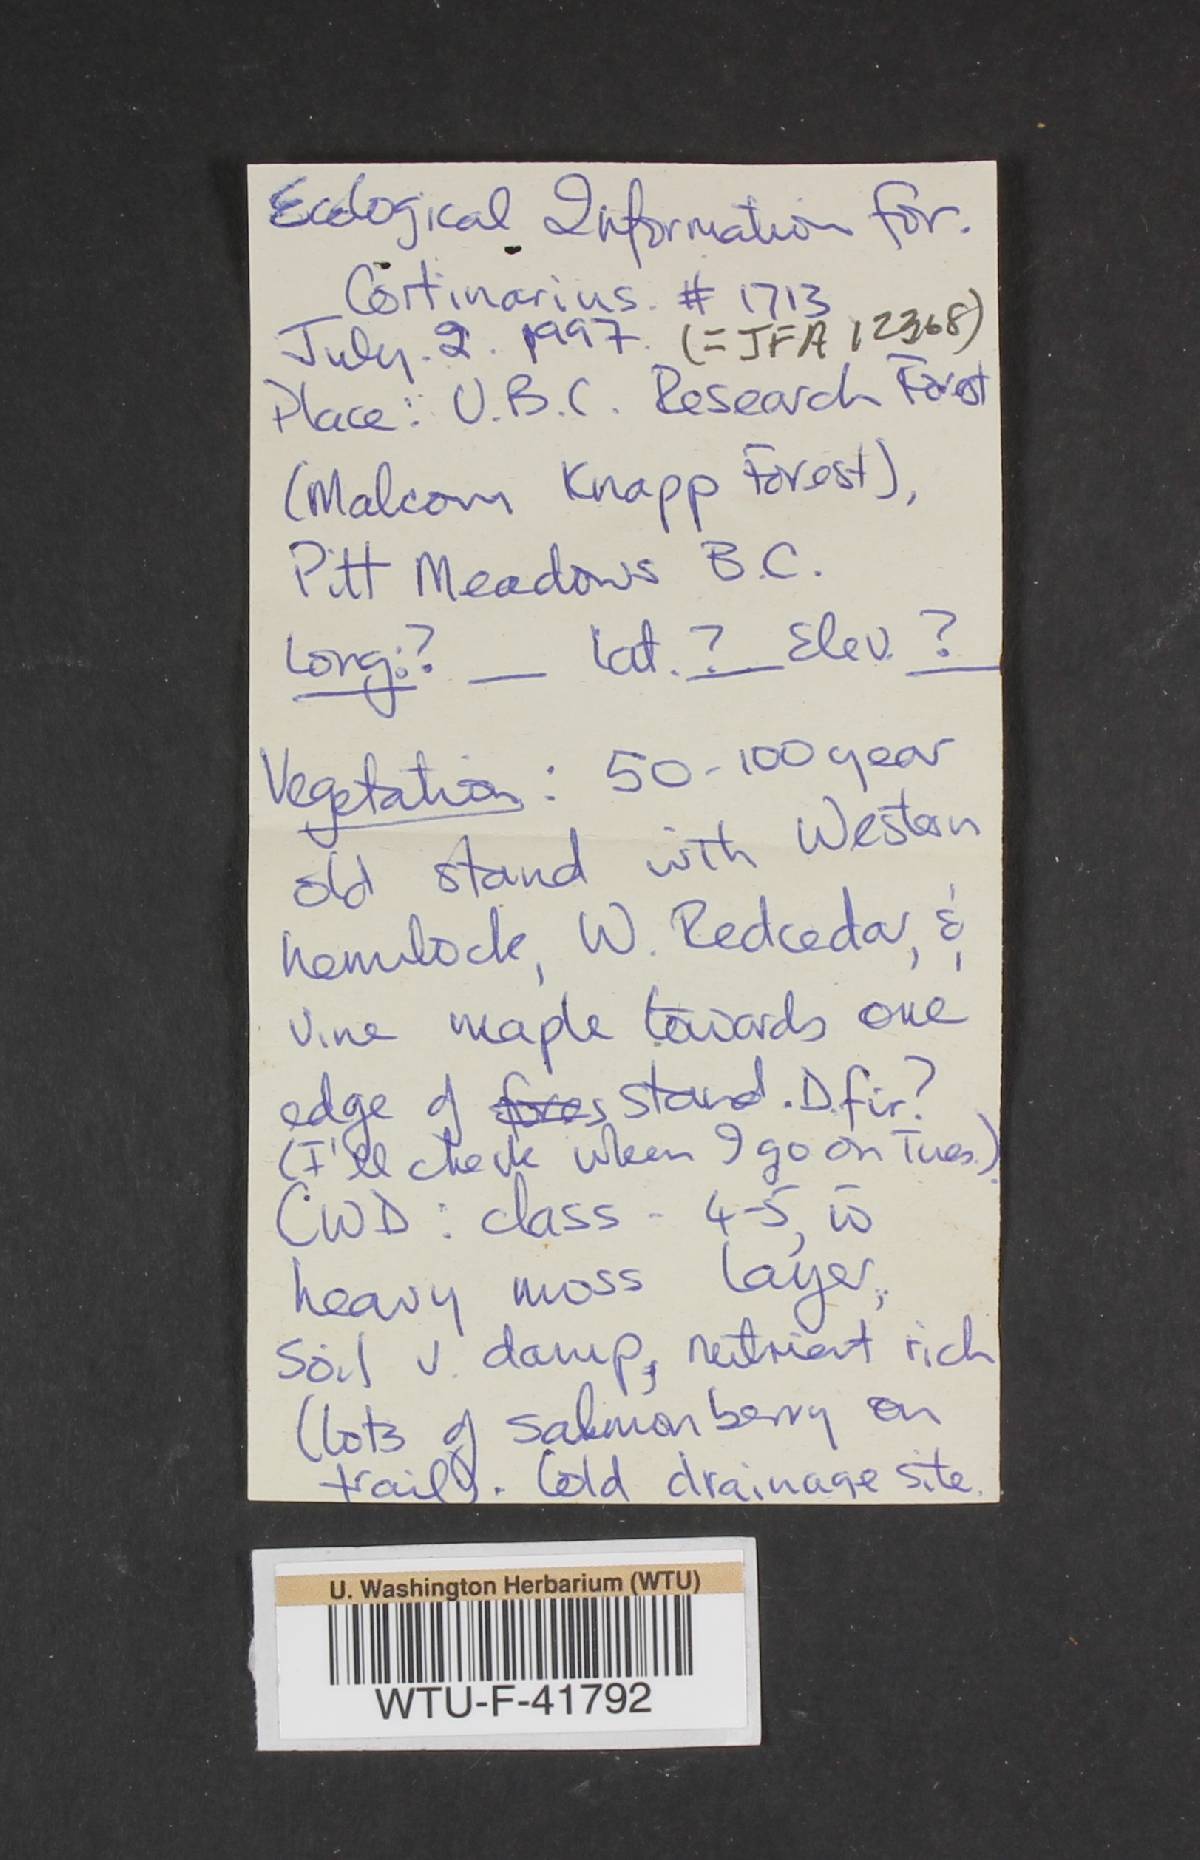 Ecological Information for.
Cortinarius. # 1713
July. 2. 1997. (= JFA 12368)
Place: U.B.C. Research Forest
(Malcom Knapp Forest),
Pitt Meadows B.C.
Long:? __ Lat. ? Elev. ?
Vegetation: 50-100 year
old stand with Western
hemlock, W. Redcedar, &
vine maple towards one
edge of fores stand. D.fir?
(I'll check when I go on Tues.)
CWD: class - 4-5, w̄
heavy moss layer,
Soil v. damp, nutrient rich
(lots of salmonberry on
trail). Cold drainage site.
U. Washington Herbarium (WTU)
WTU-F-41792